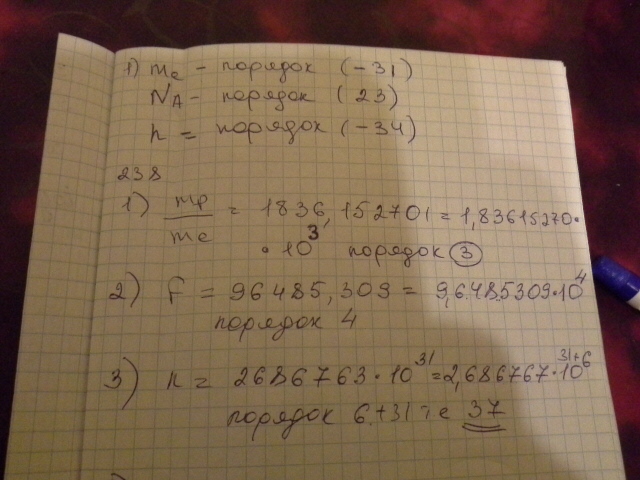 1) me - порядок (-31)
NA - порядок (23)
h = порядок (-34)
238
1) mp/me = 1836,152701 = 1,83615270·
·10³ порядок 3
2) F = 96485,309 = 9,6485309·10⁴
порядок 4
3) n = 2686763·10³¹ = 2,686767·10³¹⁺⁶
порядок 6+31 т.е 37